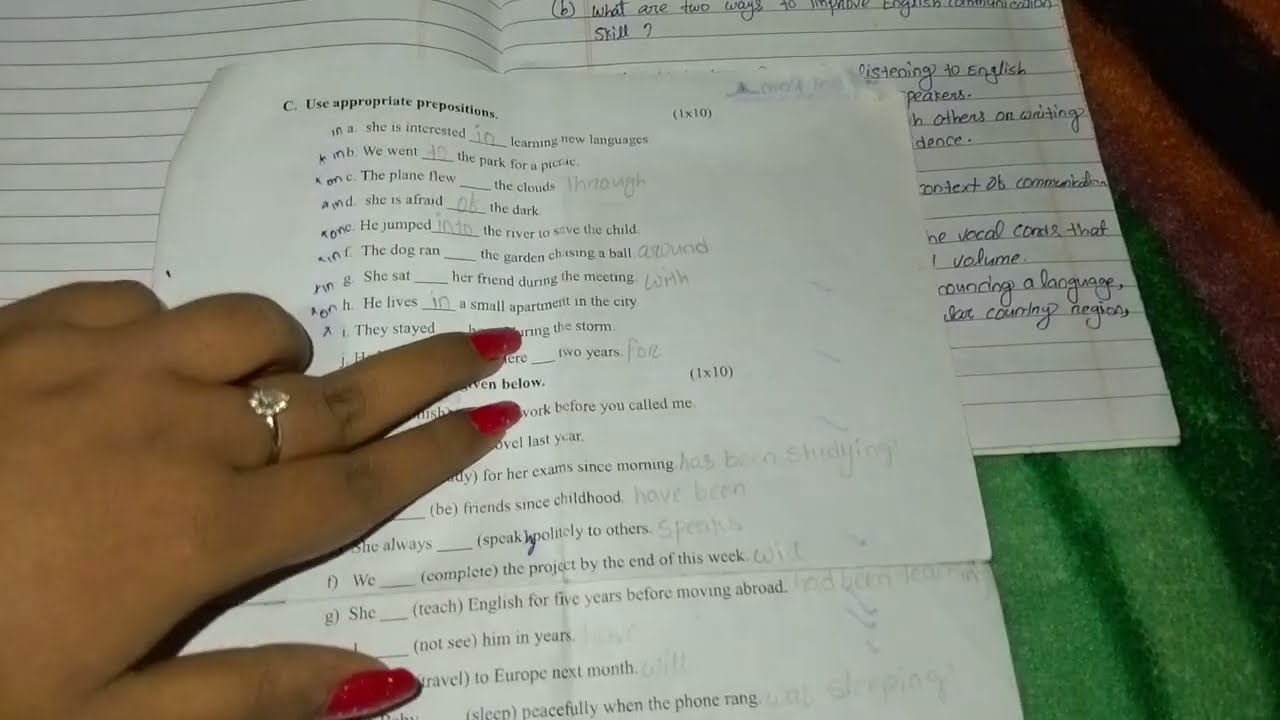 (b) What are two ways to improve English communication
skill ?
listening to English
peakers.
h others on writing
dence.
context of communication
he vocal cords that
volume.
ouncing a language,
country region,
C. Use appropriate prepositions. (1x10)
in a. she is interested in learning new languages
x in b. We went to the park for a picnic.
x on c. The plane flew ____ the clouds through
d. she is afraid of the dark.
x on e. He jumped into the river to save the child.
x in f. The dog ran ____ the garden chasing a ball around
in g. She sat ____ her friend during the meeting. with
x on h. He lives in a small apartment in the city
x i. They stayed during the storm.
j. H ere ___ two years. for
ven below. (1x10)
nish work before you called me.
ovel last year.
dy) for her exams since morning. has been studying
____ (be) friends since childhood. have been
She always ____ (speak) politely to others. speaks
f) We ____ (complete) the project by the end of this week. wil
g) She ___ (teach) English for five years before moving abroad. had been
I ____ (not see) him in years.
travel) to Europe next month. will
____ (sleep) peacefully when the phone rang. was sleeping